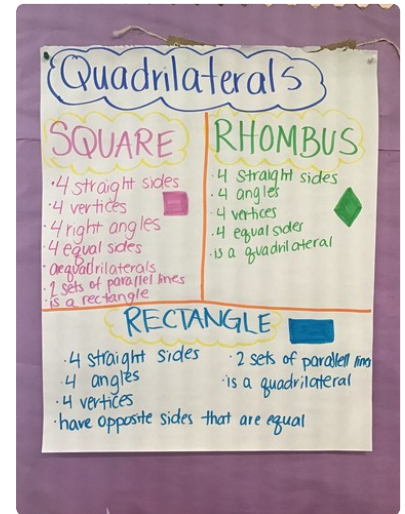 Quadrilaterals
SQUARE
· 4 straight sides
· 4 vertices
· 4 right angles
· 4 equal sides
quadrilaterals
· 2 sets of parallel lines
· is a rectangle
RHOMBUS
· 4 straight sides
· 4 angles
· 4 vertices
· 4 equal sides
· is a quadrilateral
RECTANGLE
· 4 straight sides
· 4 angles
· 4 vertices
· have opposite sides that are equal
· 2 sets of parallell lines
· is a quadrilateral